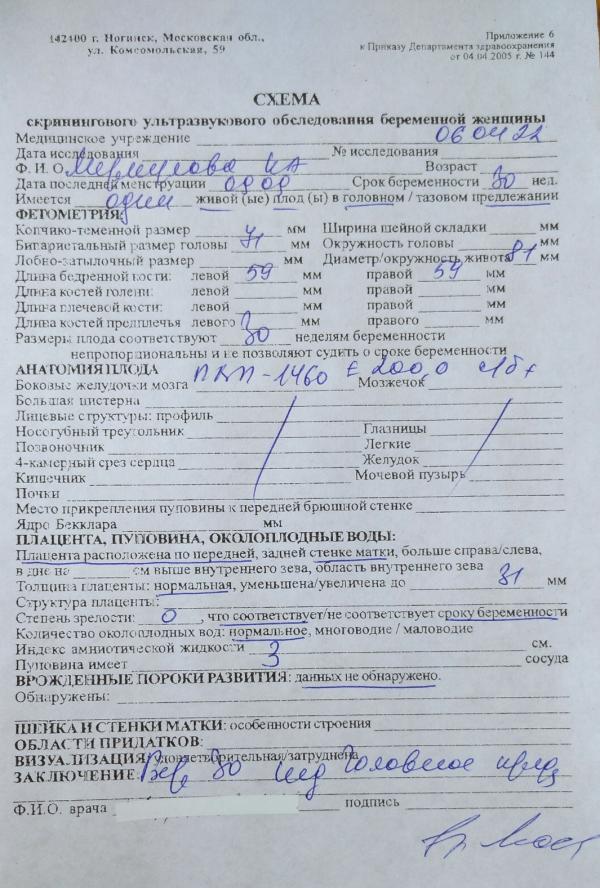 142400 г. Ногинск, Московская обл.,
ул. Комсомольская, 59
Приложение 6
к Приказу Департамента здравоохранения
от 04.04.2005 г. № 144
СХЕМА
скринингового ультразвукового обследования беременной женщины
Медицинское учреждение 060422
Дата исследования № исследования
Ф. И. О. Возраст
Дата последней менструации Срок беременности 30 нед.
Имеется один живой (ые) плод (ы) в головном / тазовом предлежании
ФЕТОМЕТРИЯ:
Копчико-теменной размер мм Ширина шейной складки мм
Бипариетальный размер головы 71 мм Окружность головы мм
Лобно-затылочный размер мм Диаметр/окружность живота 81 мм
Длина бедренной кости: левой 59 мм правой 59 мм
Длина костей голени: левой мм правой мм
Длина плечевой кости: левой мм правой мм
Длина костей предплечья левого мм правого мм
Размеры плода соответствуют 30 неделям беременности
непропорциональны и не позволяют судить о сроке беременности
АНАТОМИЯ ПЛОДА
Боковые желудочки мозга 1460 ± 200,0 Мозжечок
Большая цистерна
Лицевые структуры: профиль
Носогубный треугольник Глазницы
Позвоночник Легкие
4-камерный срез сердца Желудок
Кишечник Мочевой пузырь
Почки
Место прикрепления пуповины к передней брюшной стенке
Ядро Бекклара мм
ПЛАЦЕНТА, ПУПОВИНА, ОКОЛОПЛОДНЫЕ ВОДЫ:
Плацента расположена по передней, задней стенке матки, больше справа/слева,
в дне на см выше внутреннего зева, область внутреннего зева
Толщина плаценты: нормальная, уменьшена/увеличена до 31 мм
Структура плаценты:
Степень зрелости: 0, что соответствует/не соответствует сроку беременности
Количество околоплодных вод: нормальное, многоводие / маловодие
Индекс амниотической жидкости см.
Пуповина имеет 3 сосуда
ВРОЖДЕННЫЕ ПОРОКИ РАЗВИТИЯ: данных не обнаружено.
Обнаружены:
ШЕЙКА И СТЕНКИ МАТКИ: особенности строения
ОБЛАСТИ ПРИДАТКОВ:
ВИЗУАЛИЗАЦИЯ: удовлетворительная/затруднена
ЗАКЛЮЧЕНИЕ: Бер 30 нед Головное предл
Ф.И.О. врача подпись